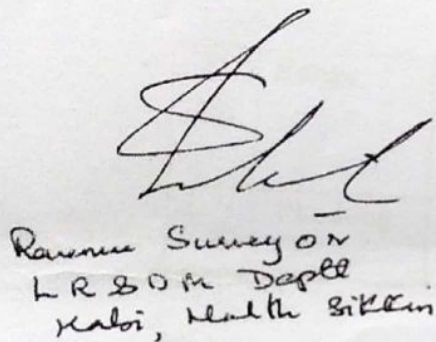 Revenue Surveyor
LR & DM Deptt
Kabi, North Sikkim